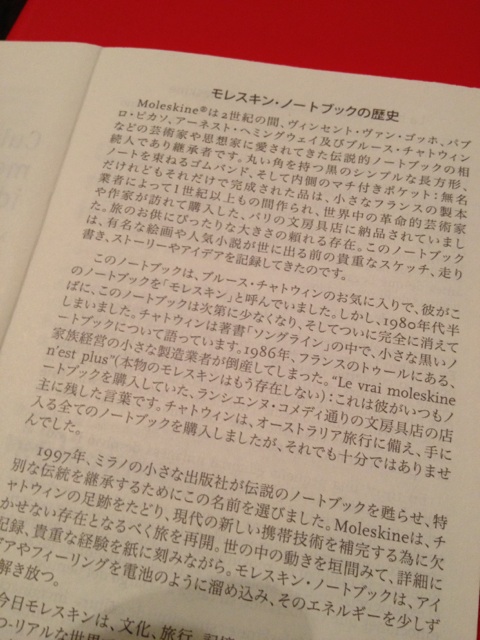 モレスキン・ノートブックの歴史
Moleskine®は2世紀の間、ヴィンセント・ヴァン・ゴッホ、パブ
ロ・ピカソ、アーネスト・ヘミングウェイ及びブルース・チャトウィン
などの芸術家や思想家に愛されてきた伝説的ノートブックの相
続人であり継承者です。丸い角を持つ黒のシンプルな長方形、
ノートを束ねるゴムバンド、そして内側のマチ付きポケット：無名
だけれどもそれだけで完成された品は、小さなフランスの製本
業者によって1世紀以上もの間作られ、世界中の革命的芸術家
や作家が訪れて購入した、パリの文房具店に納品されていまし
た。旅のお供にぴったりな大きさの頼れる存在。このノートブック
は、有名な絵画や人気小説が世に出る前の貴重なスケッチ、走り
書き、ストーリーやアイデアを記録してきたのです。
このノートブックは、ブルース・チャトウィンのお気に入りで、彼がこ
のノートブックを「モレスキン」と呼んでいました。しかし、1980年代半
ばに、このノートブックは次第に少なくなり、そしてついに完全に消えて
しまいました。チャトウィンは著書「ソングライン」の中で、小さな黒いノ
ートブックについて語っています。1986年、フランスのトゥールにある、
家族経営の小さな製造業者が倒産してしまった。“Le vrai moleskine
n'est plus”(本物のモレスキンはもう存在しない)：これは彼がいつもノ
ートブックを購入していた、ランシエンヌ・コメディ通りの文房具店の店
主に残した言葉です。チャトウィンは、オーストラリア旅行に備え、手に
入る全てのノートブックを購入しましたが、それでも十分ではありませ
んでした。
1997年、ミラノの小さな出版社が伝説のノートブックを甦らせ、特
別な伝統を継承するためにこの名前を選びました。Moleskineは、チ
ャトウィンの足跡をたどり、現代の新しい携帯技術を補完する為に欠
かせない存在となるべく旅を再開。世の中の動きを垣間みて、詳細に
記録、貴重な経験を紙に刻みながら。モレスキン・ノートブックは、アイ
アやフィーリングを電池のように溜め込み、そのエネルギーを少しず
解き放つ。
今日モレスキンは、文化、旅行、記憶
つ-リアルな世界